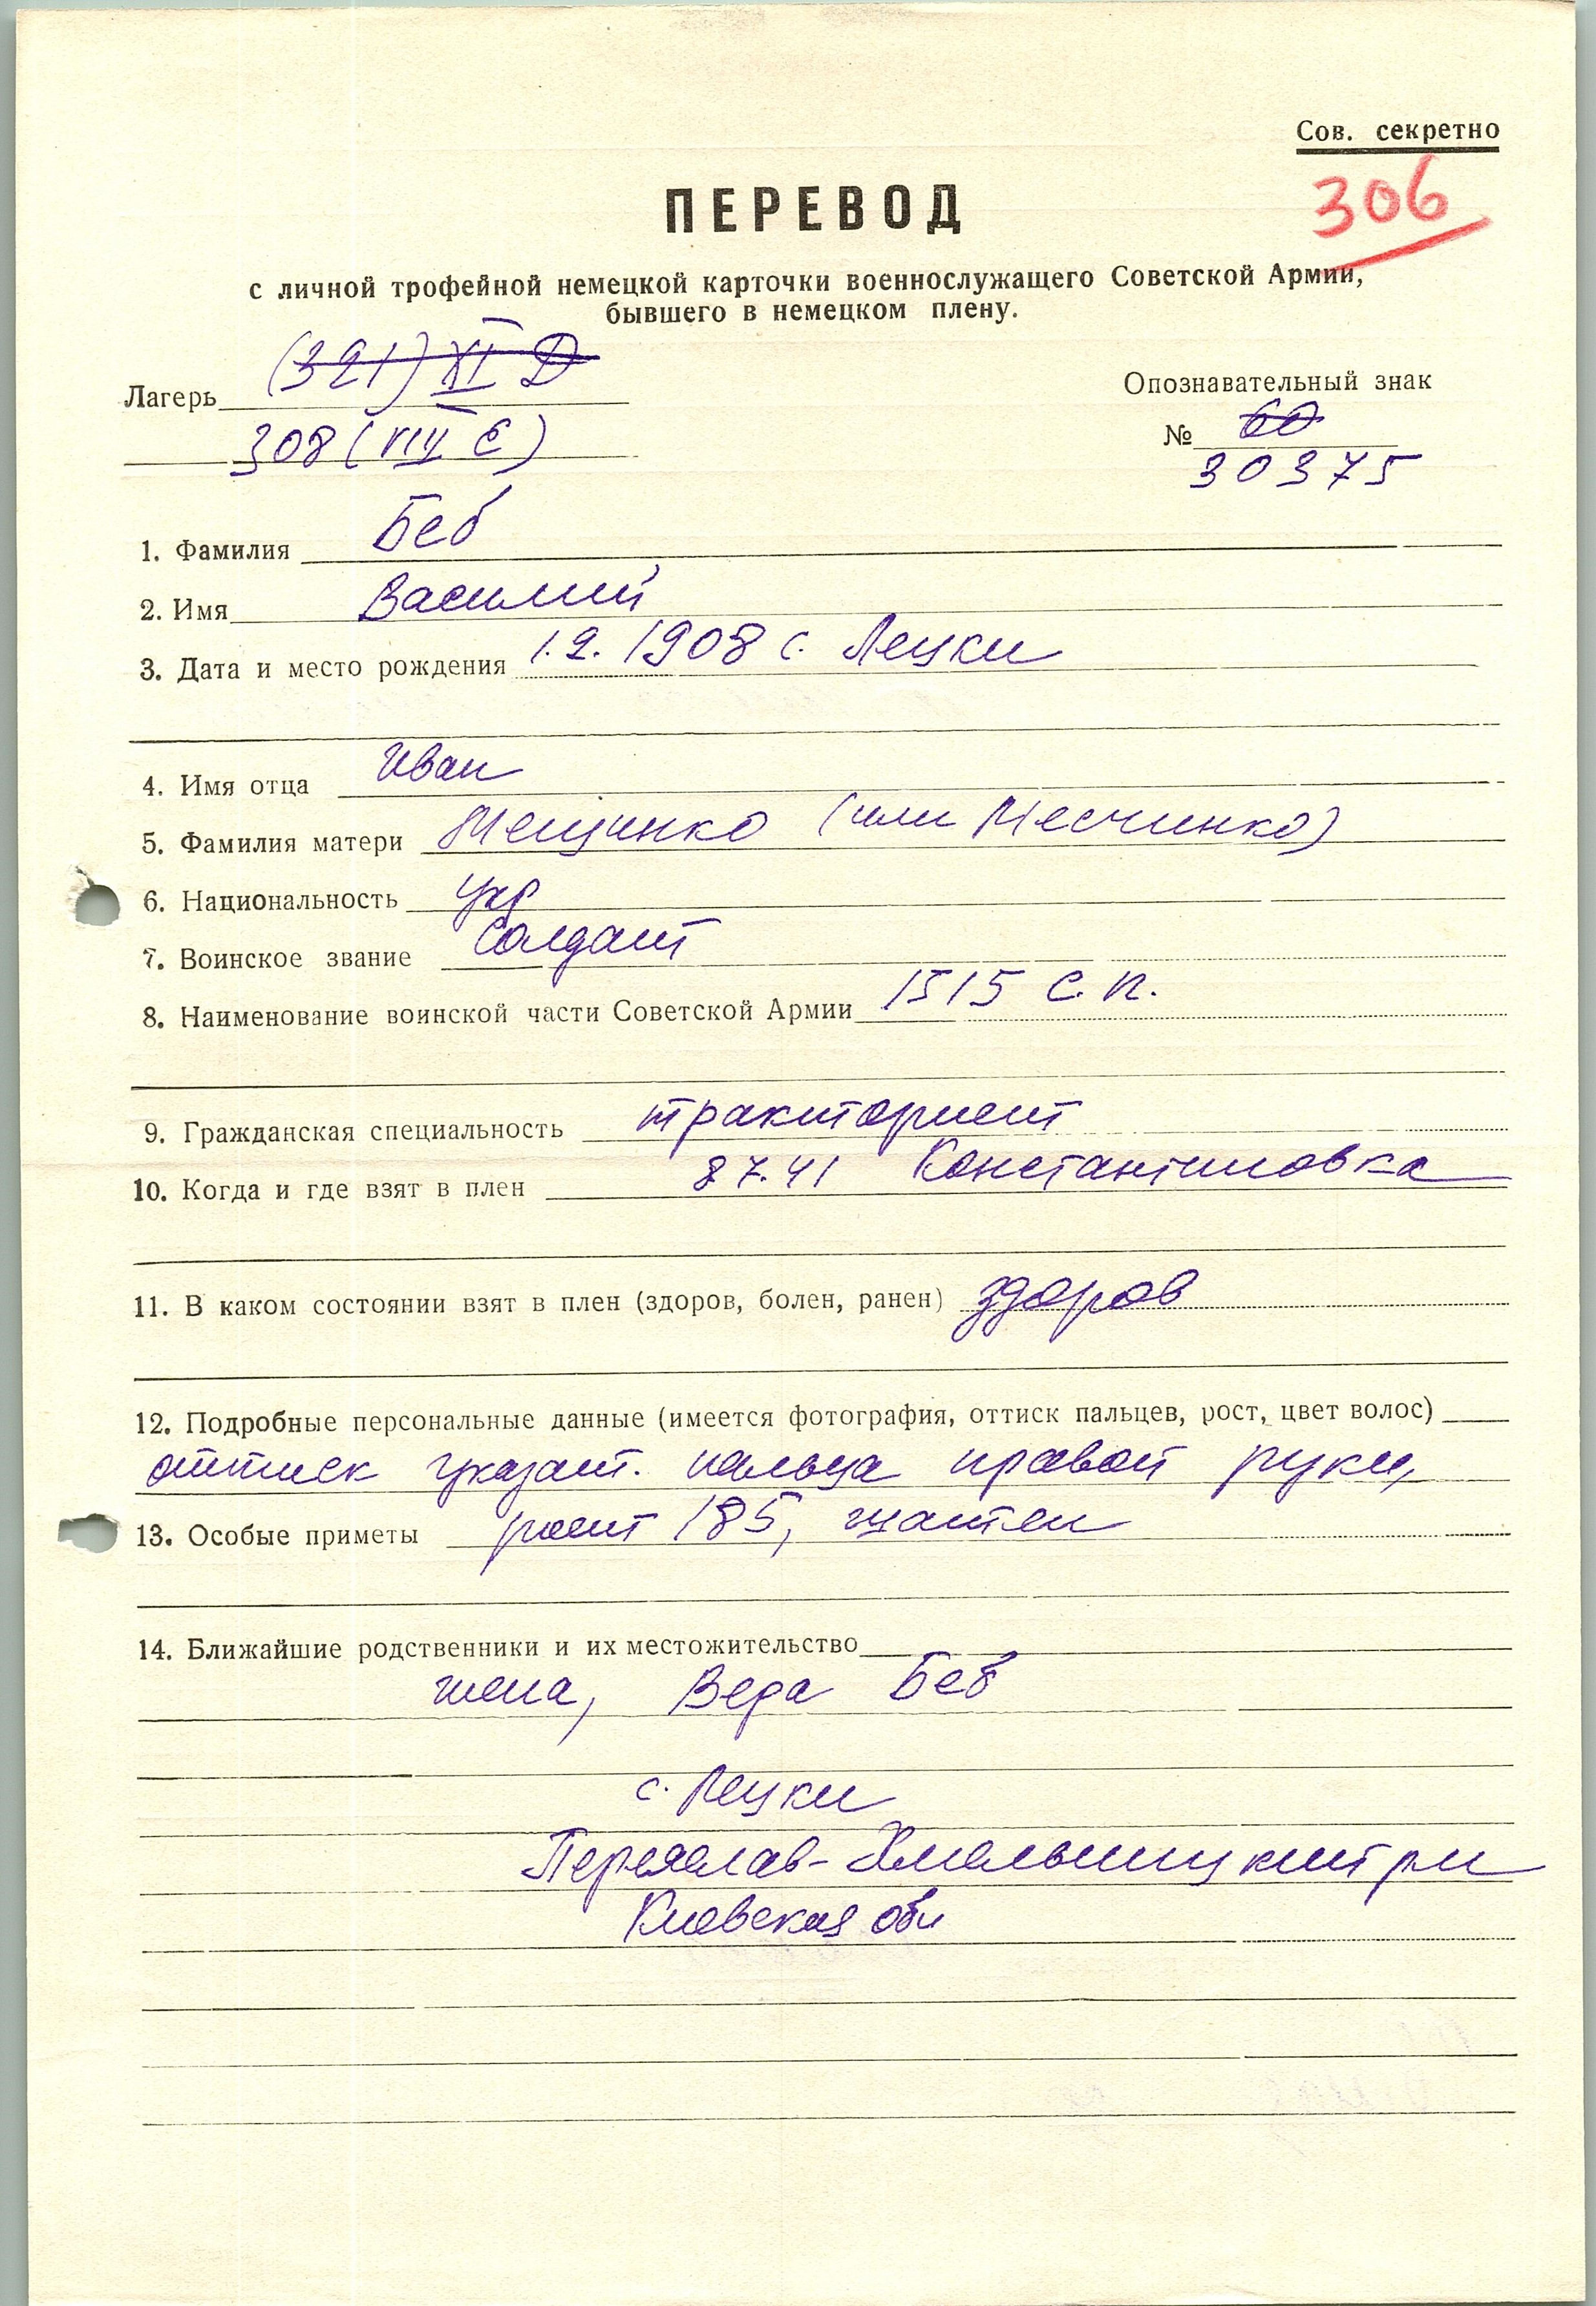 Сов. секретно
306
ПЕРЕВОД
с личной трофейной немецкой карточки военнослужащего Советской Армии,
бывшего в немецком плену.
Лагерь (321) XI D
308 (VIII E)
Опознавательный знак
№ 60
30375
1. Фамилия Беб
2. Имя Василий
3. Дата и место рождения 1.2.1908 с. Лецки
4. Имя отца Иван
5. Фамилия матери Мещинко (или Месчинко)
6. Национальность укр
7. Воинское звание Солдат
8. Наименование воинской части Советской Армии 1515 с.п.
9. Гражданская специальность тракторист
10. Когда и где взят в плен 8 7.41 Константиновка
11. В каком состоянии взят в плен (здоров, болен, ранен) здоров
12. Подробные персональные данные (имеется фотография, оттиск пальцев, рост, цвет волос)
оттиск указат. пальца правой руки,
13. Особые приметы рост 185, шатен
14. Ближайшие родственники и их местожительство
жена, Вера Беб
с. Лецки
Переяслав-Хмельницкий р-н
Киевская обл